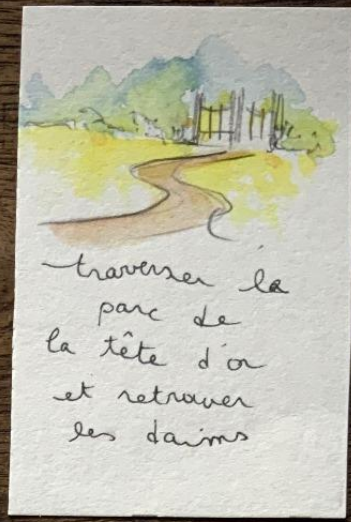 traverser la
parc de
la tête d'or
et retrouver
les daims